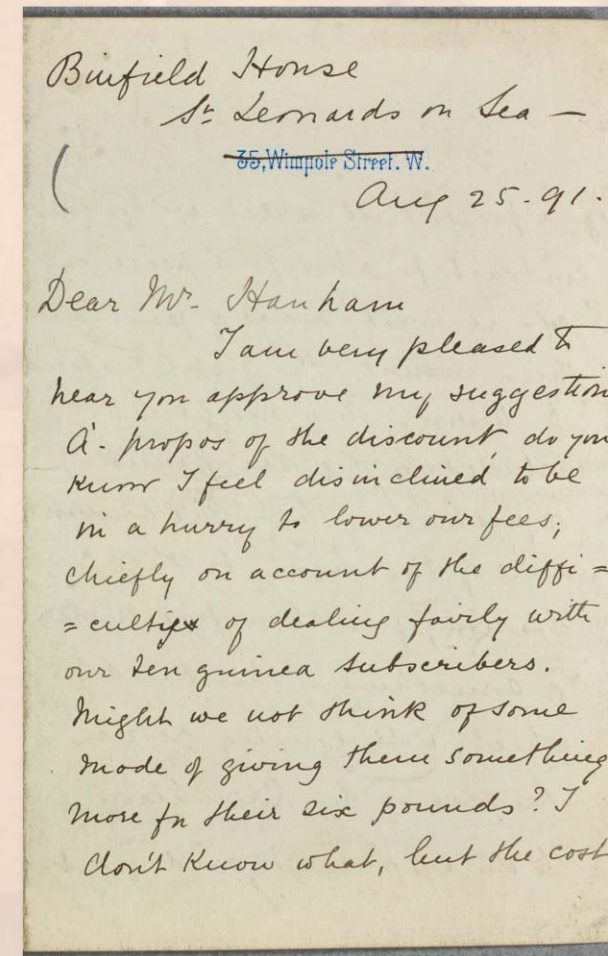 Binfield House
St. Leonards on Sea —
35, Wimpole Street. W.
Aug 25 - 91.
Dear Mr. Hanham
I am very pleased to
hear you approve my suggestion
À - propos of the discount, do you
know I feel disinclined to be
in a hurry to lower our fees;
chiefly on account of the diffi =
= culty of dealing fairly with
our ten guinea subscribers.
Might we not think of some
mode of giving them something
more for their six pounds? I
don't know what, but the cost